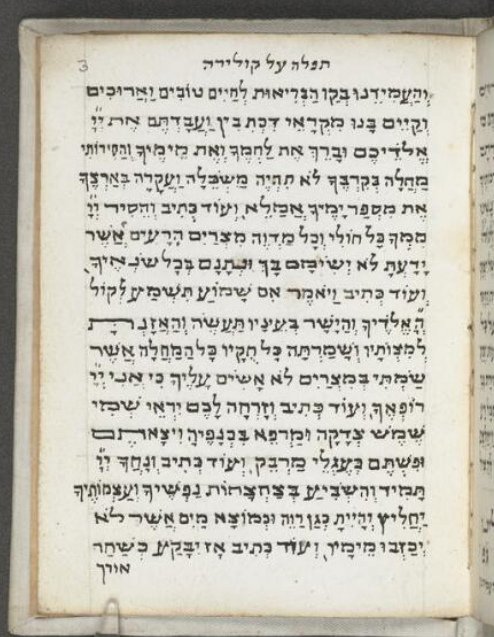 3
תפלה על קולירה
וְהַעֲמִידֵנוּ בְּקַו הַבְּרִיאוּת לְחַיִּים טוֹבִים וַאֲרוּכִים
וְקַיֵּים בָּנוּ מִקְרָאֵי דִכְתִבִין וַעֲבַדְתֶּם אֶת יְיָ
אֱלֹדֵיכֶם וּבֵרַךְ אֶת לַחְמְךָ וְאֶת מֵימֶיךָ וַהֲסִירוֹתִי
מַחֲלָה בְקִרְבֶּךָ לֹא תִהְיֶה מְשַׁכֵּלָה וַעֲקָרָה בְּאַרְצֶךָ
אֶת מִסְפַּר יָמֶיךָ אֲמַלֵּא, וְעוֹד כְּתִיב וְהֵסִיר יְיָ
מִמְּךָ כָּל חוֹלִי וְכָל מַדְוֵה מִצְרַיִם הָרָעִים אֲשֶׁר
יָדַעְתָּ לֹא יְשִׂימָם בָּךְ וּנְתָנָם בְּכָל שׂנְאֶיךָ,
וְעוֹד כְּתִיב וַיֹּאמֶר אִם שָׁמוֹעַ תִּשְׁמַע לְקוֹל
אֱלֹדֶיךָ וְהַיָּשָׁר בְּעֵינָיו תַּעֲשֶׂה וְהַאֲזַנְתָּ
לְמִצְוֹתָיו וְשָׁמַרְתָּה כָּל חֻקָּיו כָּל הַמַּחֲלָה אֲשֶׁר
שַׂמְתִּי בְמִצְרַיִם לֹא אָשִׂים עָלֶיךָ כִּי אֲנִי יְיָ
רוֹפְאֶךָ, וְעוֹד כְּתִיב וְזָרְחָה לָכֶם יִרְאֵי שְׁמִי
שֶׁמֶשׁ צְדָקָה וּמַרְפֵּא בִּכְנָפֶיהָ וִיצָאתֶם
וּפִשְׁתֶּם כְּעֶגְלֵי מַרְבֵּק, וְעוֹד כְּתִיב וְנָחֲךָ יְיָ
תָּמִיד וְהִשְׂבִּיעַ בְּצַחְצָחוֹת נַפְשֶׁיךָ וְעַצְמוֹתֶיךָ
יַחֲלִיץ וְהָיִיתָ כְּגַן רָוֶה וּכְמוֹצָא מַיִם אֲשֶׁר לֹא
יְכַזְּבוּ מֵימָיו, וְעוֹד כְּתִיב אָז יִבָּקַע כַּשַּׁחַר
אורך